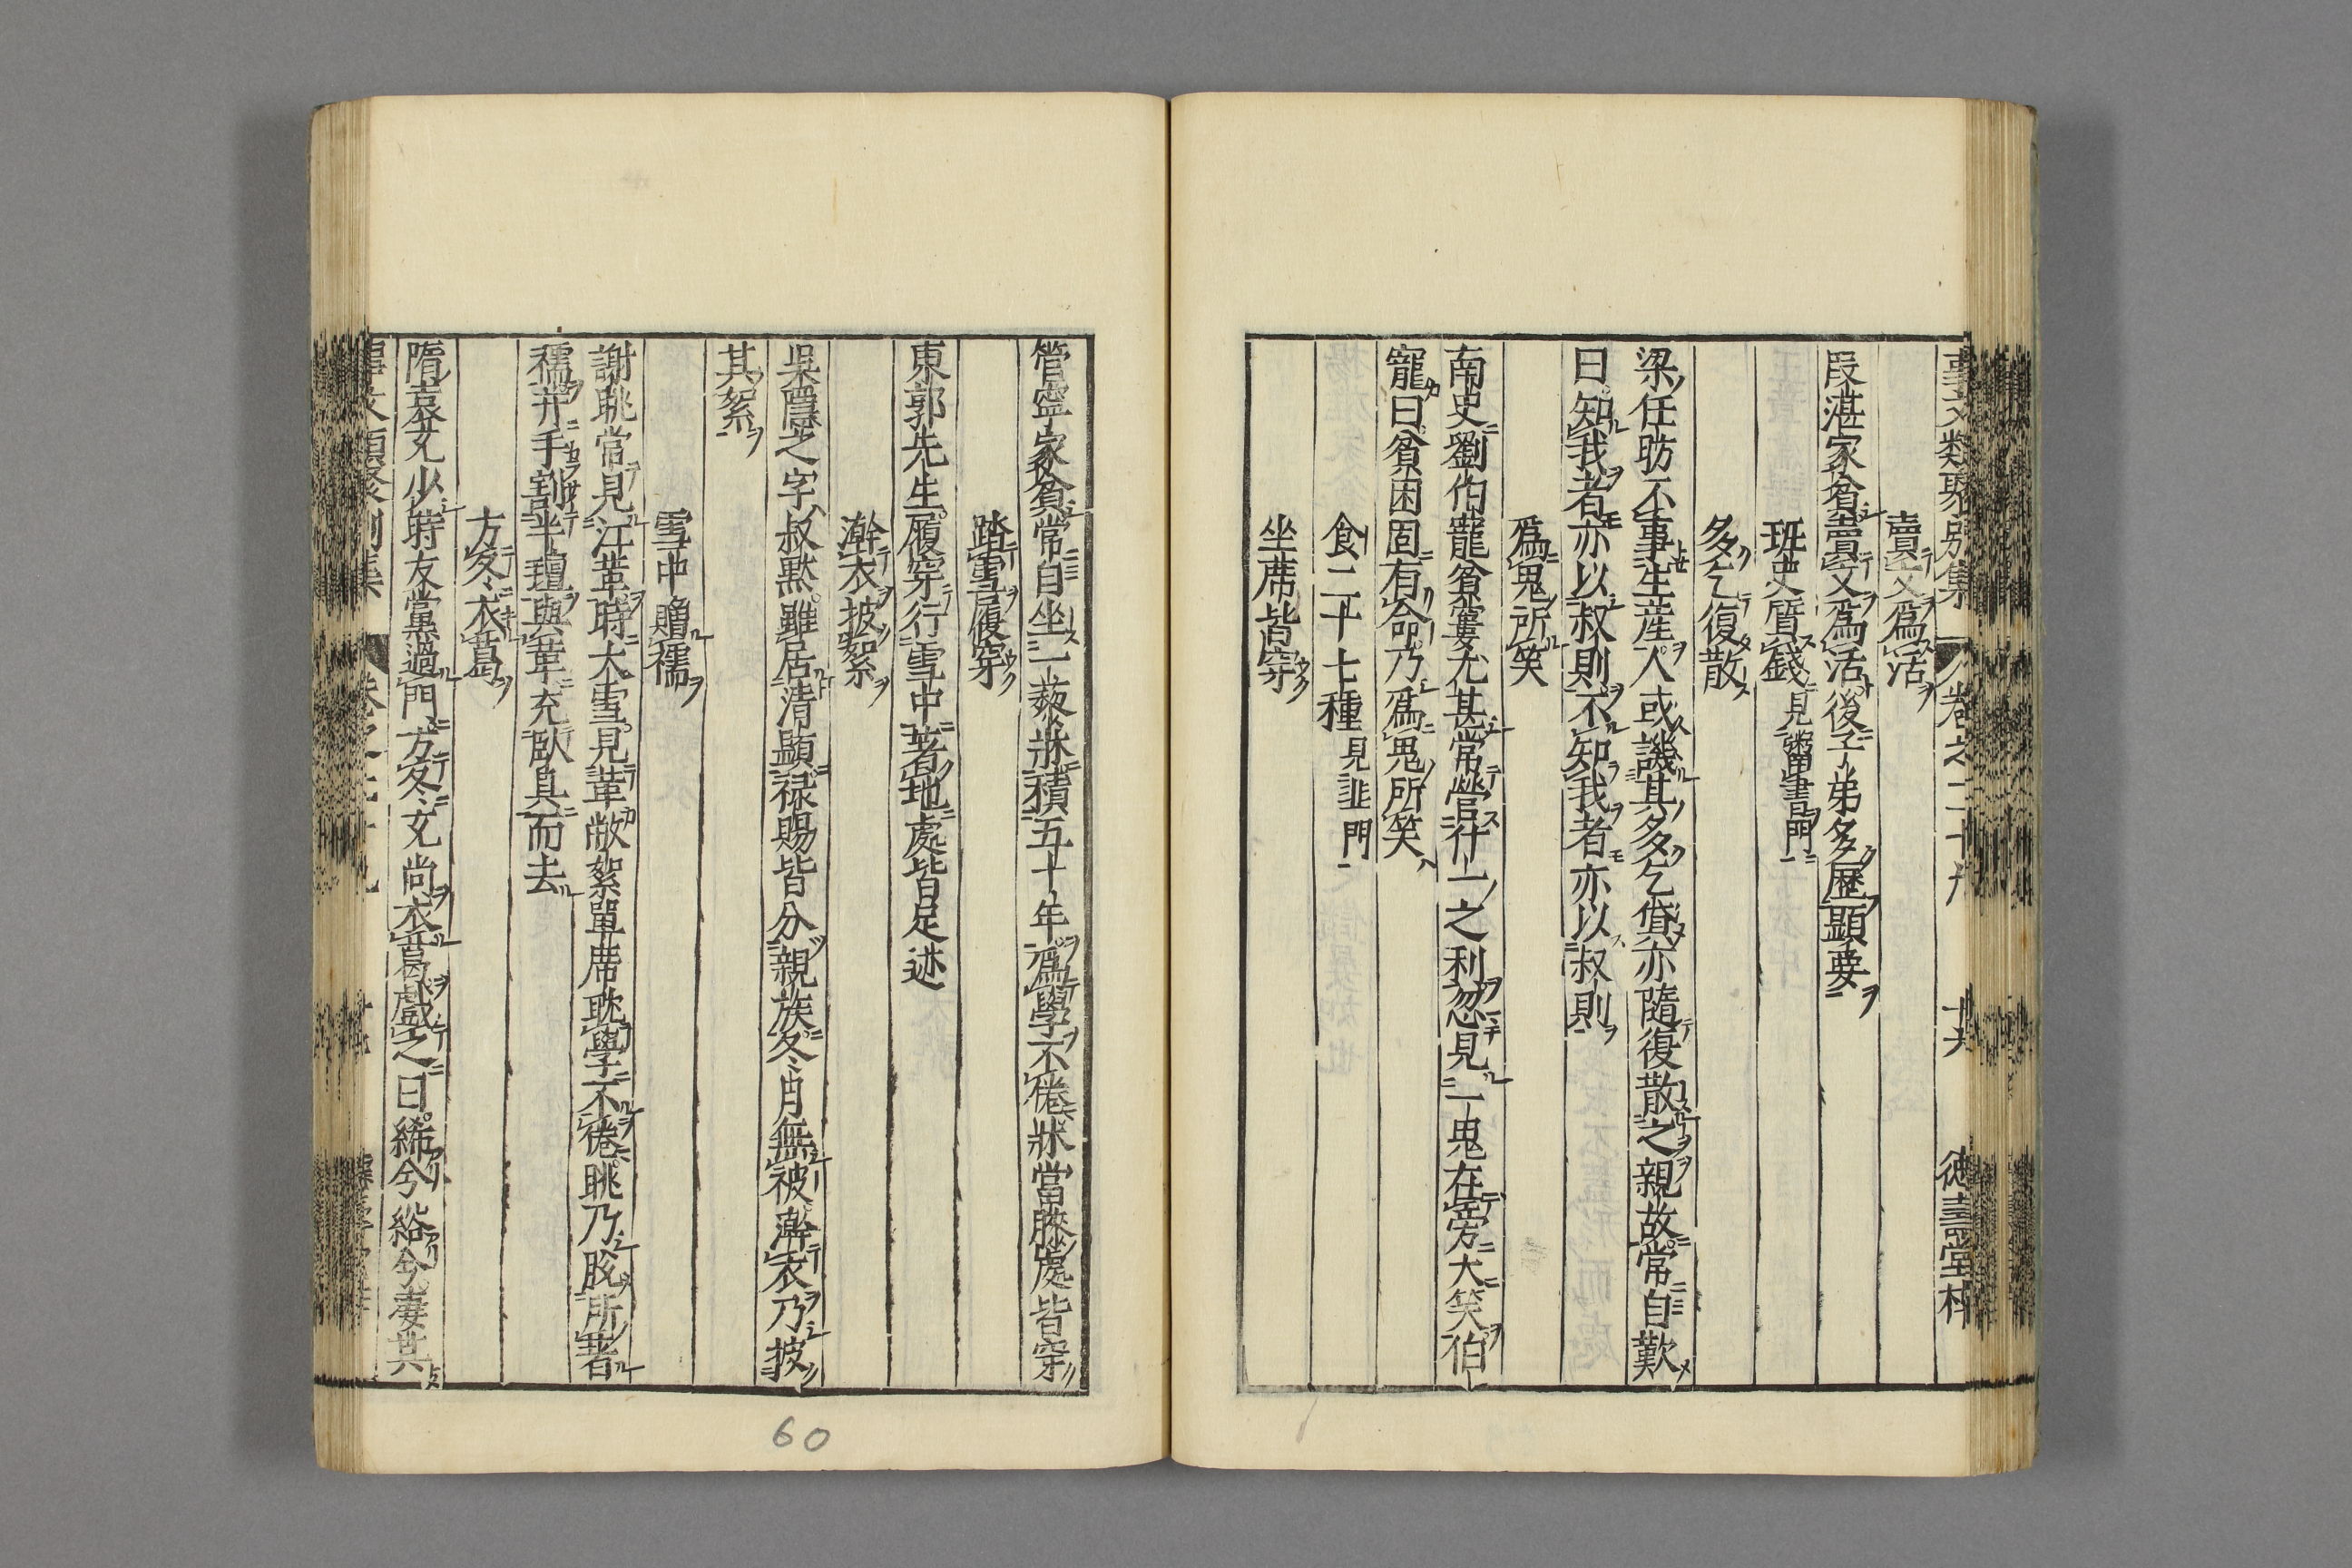 事文類聚別集 卷之二十九 十六 德壽堂梓
賣文爲活
段湛家貧賣文爲活後子弟多歷顯要
班史質錢見鬻書門
多乞復散
梁任昉不事生產人或譏其多乞貸亦隨復散之親故常自歎
曰知我者亦以叔則不知我者亦以叔則
爲鬼所笑
南史劉伯寵貧窶尤甚常營什一之利忽見一鬼在旁大笑伯
寵曰貧困固有命乃爲鬼所笑
食二十七種見韭門
坐席皆穿
管寧家貧常自坐一藜牀積五十年爲學不倦牀當膝處皆穿
踏雪履穿
東郭先生履穿行雪中著地處皆足迹
澣衣披絮
吳隱之字叔默雖居清顯祿賜皆分親族冬月無被澣衣乃披
其絮
雪中贈襦
謝眺常見江革時大雪見革敝絮單席耽學不倦眺乃脫所著
襦并手割半氊與革充臥具而去
方冬衣葛
隋袁充少時友黨過門方冬充尚衣葛戲之曰絺兮綌兮凄其